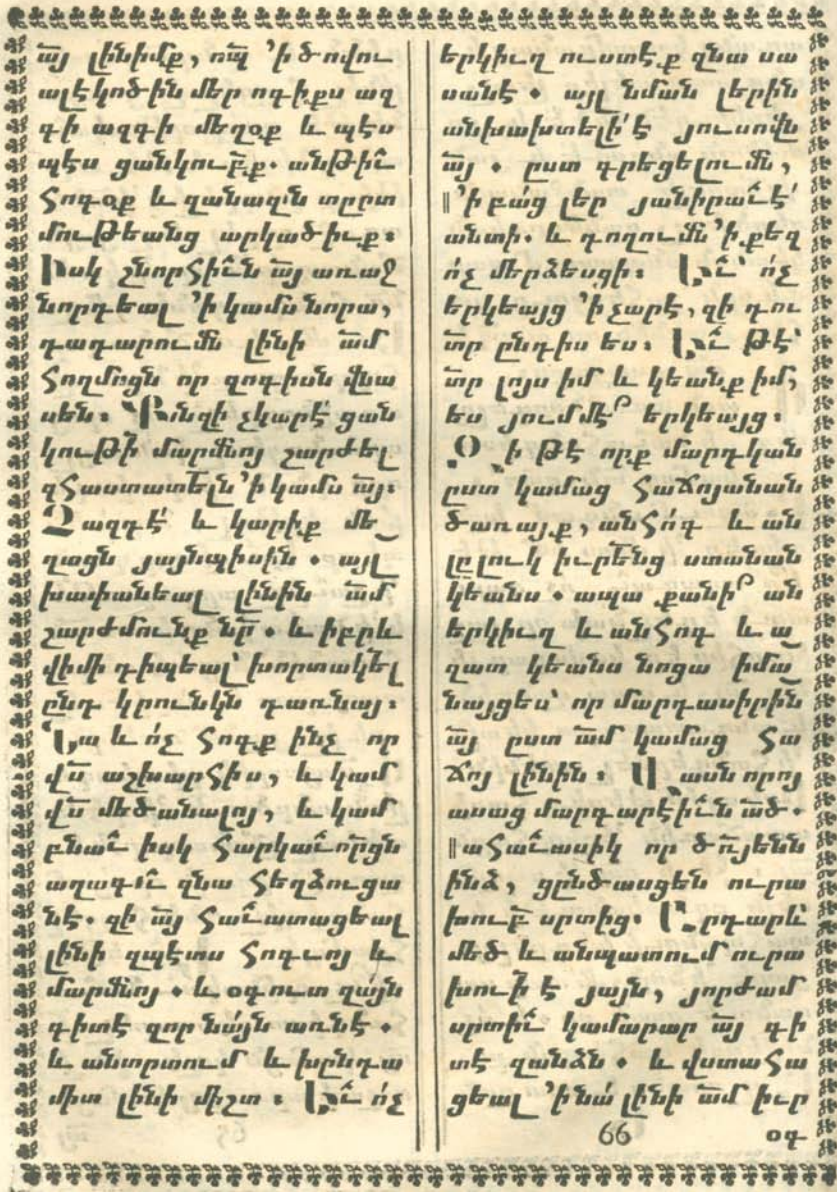 ա՟յ լինիմք, ո՟պ ՚ի ծովու
ալէկոծին մեր ոգիքս ազ
գի ազգի մեղօք և պէս
պէս ցանկու՟բք. անթիւ
հոգօք և զանազն տրըտ
մութեանց արկածիւք։
Իսկ շնորհիւն ա՟յ առաջ
նորդեալ ՚ի կամս նորա,
դադարումն լինի ա՟մ
հողմոցն որ զոգիսն վնա
սեն։ Քանզի չկարէ ցան
կութի՟ մարմնոյ շարժել
զհաստատեելն ՚ի կամս ա՟յ։
Զազդէ՛ և կարիք մե֊
ղացն յայնպիսին. այլ
խափանեալ լինին ա՟մ
շարժմունք նր՟. և իբրև
վիմի դիպեալ՝ խորտակեել
ընդ կրունկն դառնայ։
Նա և ո՛չ հոգք ինչ որ
վս՟ աշխարհիս, և կամ
վս՟ մեծանալոյ, և կամ
բնաւ իսկ հարկաւորցն
աղագաւ զնա հեղձուցա
նէ. զի ա՟յ հաւատացեալ
լինի զպէտս հոգւոյ և
մարմնոյ. և օգուտ զայն
գիտէ զոր նայն առնէ.
և անտրտում և խընդա
միտ լինի միշտ։ Եւ ո՛չ
երկիւղ ուստէք զնա սա
սանէ. այլ նման լերին
անխախտելի՛ է յուսովն
ա՟յ. ըստ գրեցելումն,
՚ի բաց լեր յանիրաւէ՛
անտի. և դողումն ՚ի քեզ
ո՛չ մերձեսցի։ Եւ՝ ո՛չ
երկեայց ՚ի չարէ, զի դու
տ՟ր ընդիս ես։ Եւ թէ՝
տ՟ր լոյս իմ և կեանք իմ,
ես յումմէ՞ երկեայց։
Զի թէ որք մարդկան
ըստ կամաց հաճոյանան
ծառայք, անհոգ և ան
լըլուկ իւրեենց ստանան
կեանս. ապա քանի՞ ան
երկիւղ և անհոգ և ա֊
զատ կեանս նոցա իմա֊
նայցես՝ որ մարդասիրին
ա՟յ ըստ ա՟մ կամաց հա
ճոյ լինին։ Վասն որոյ
ասաց մարգարէիւն ա՟ծ.
ահաւասիկ որ ծ՟այենն
ինձ, ցընծասցեն ուրա
խու՟բ սրտից։ Արդարև՝
մեծ և անպատում ուրա
խուի՟ է յայն, յորժամ
սրտիւ կամարար ա՟յ գի
տէ զանձն. և վստահա
ցեալ ՚ի նա լինի ա՟մ իւր
66 օգ